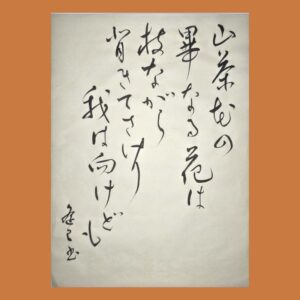 山茶花の
畢なる花は
枝ながら
背きてさけり
我は向けども